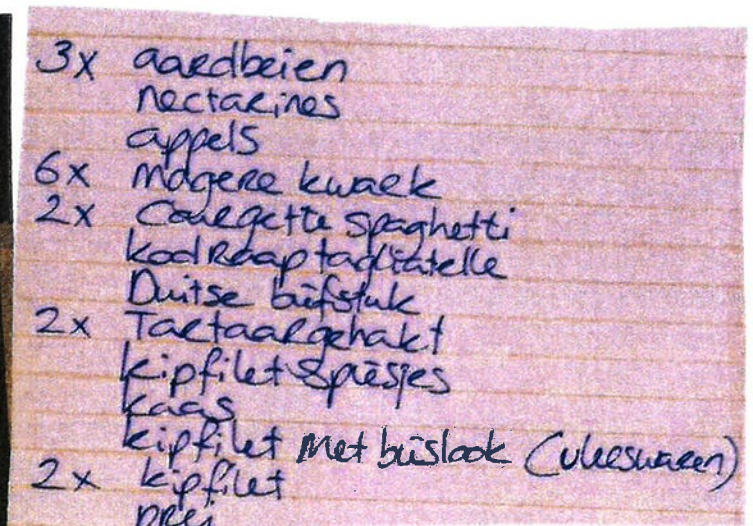 3x aardbeien
nectarines
appels
6x magere kwark
2x Courgette spaghetti
koolraap tagliatelle
Duitse biefstuk
2x Tartaargehakt
kipfilet spiesjes
kaas
kipfilet met bieslook (vleeswaren)
2x kipfilet
prei